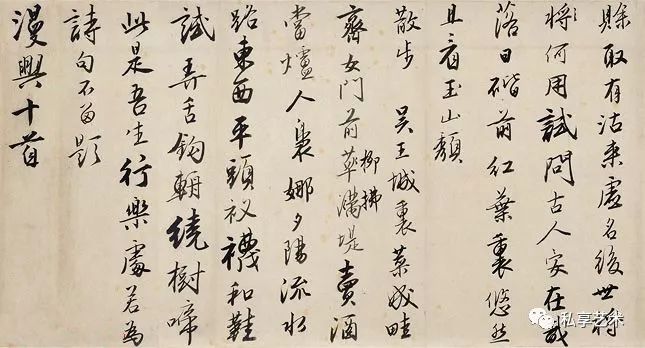 賒取有沽來虛名後世將
將何用試問古人安在哉
落日階前紅葉裏悠然
且看玉山頹
散步 吳王城裏菜成畦
齊女門前草滿堤賣酒
柳拂
當爐人裊娜夕陽流水
路東西平頭衩襪和鞋
試弄舌鈎輈繞樹啼
此是吾生行樂處若為
詩句不留題
漫興十首
私享艺术